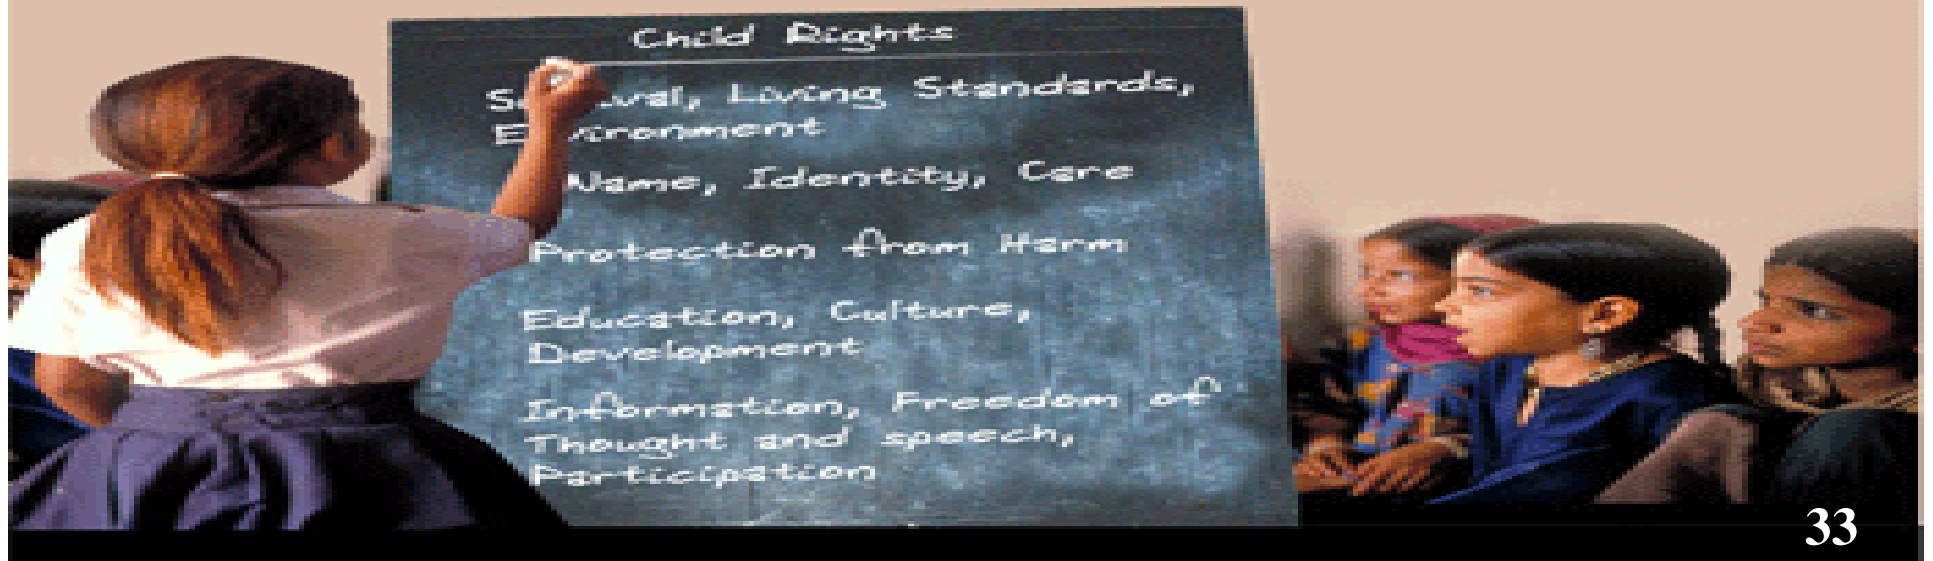 Child Rights
Survival, Living Standards,
Environment
Name, Identity, Care
Protection from Harm
Education, Culture,
Development
Information, Freedom of
Thought and speech,
Participation
33